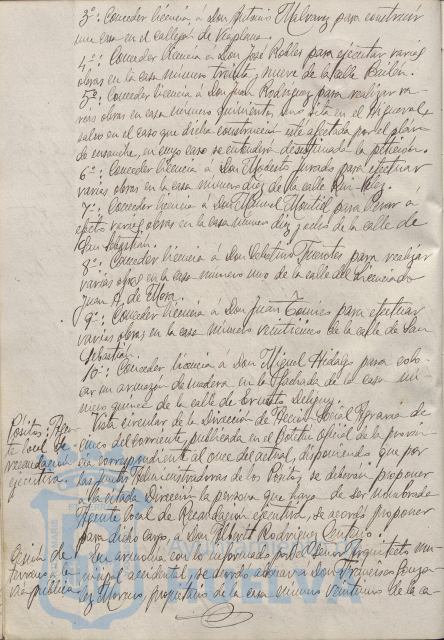 3º: Conceder licencia, á Don Antonio Malvarez para construir
una casa en el callejon de Vesplana.
4º: Conceder licencia á Don José Robles para ejecutar varias
obras en la casa número treinta y nueve de la calle Bailén.
5º: Conceder licencia á Don Juan Rodriguez para realizar va-
rias obras en casa número quinientos sita en el Higueral,
salvo en el caso que dicha construcción esté afectada por el plan
de ensanche, en cuyo caso se entenderá desestimada la petición.
6º: Conceder licencia á Don Modesto Jurado para efectuar
varias obras en la casa número diez de la calle
7º: Conceder licencia á Don Manuel Montiel para llevar á
efecto varias obras en la casa número diez y ocho de la calle de
San Sebastián.
8º: Conceder licencia á Don Celestino Fuentes para realizar
varias obras en la casa número uno de la calle del Licenciado
Juan A. de Mora.
9º: Conceder licencia á Don Juan para efectuar
varias obras en la casa número veinticinco de la calle de San
Sebastián.
10º: Conceder licencia á Don Miguel Hidalgo para colo-
car un armazón de madera en la fachada de la casa nú-
mero quince de la calle de Ernesto Deligny.
Pósitos: Agen-
te local de
recaudación
ejecutiva.
Vista circular de la Dirección de Acción Social Agraria de
cinco del corriente, publicada en el Boletín Oficial de la provin-
cia correspondiente al once del actual, disponiendo que por
las Juntas Administradoras de los Pósitos, se deberán proponer
á la citada Dirección la persona que haya de ser nombrada
Agente local de Recaudación ejecutiva, se acordó proponer
para dicho cargo, á Don Alberto Rodriguez Centeno.
Cesión de
terreno de
vía pública.
En armonía con lo informado por el Señor Arquitecto mu-
nicipal accidental, se acordó á Don Francisco Gonza-
lez Moreno, propietario de la casa número veintiuno de la ca-
HUELVA